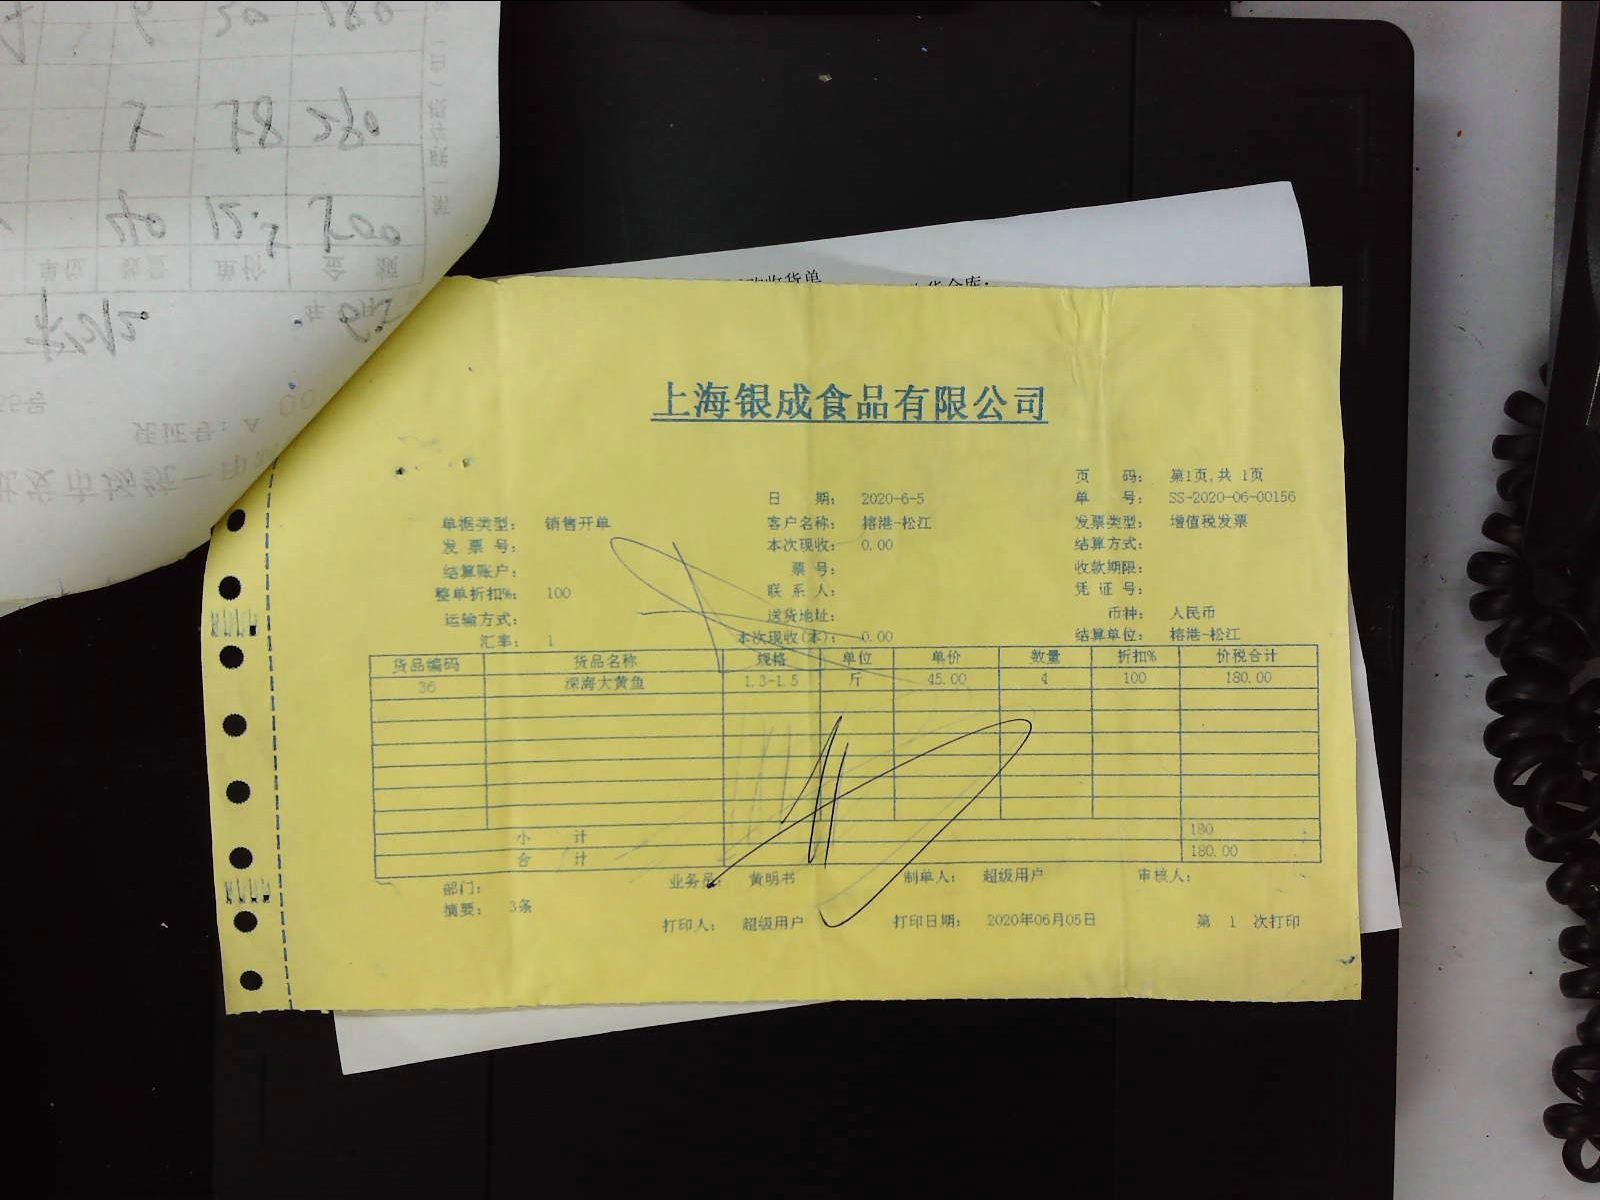 购收货单
上海银成食品有限公司
页 码: 第1页,共 1页
日 期: 2020-6-5 单 号: SS-2020-06-00156
单据类型: 销售开单 客户名称: 榕港-松江 发票类型: 增值税发票
发 票 号: 本次现收: 0.00 结算方式:
结算账户: 票 号: 收款期限:
整单折扣%: 100 联 系 人: 凭 证 号:
运输方式: 送货地址: 币种: 人民币
汇率: 1 本次现收(本): 0.00 结算单位: 榕港-松江
货品编码 货品名称 规格 单位 单价 数量 折扣% 价税合计
36 深海大黄鱼 1.3-1.5 斤 45.00 4 100 180.00
小 计 180
合 计 180.00
部门: 业务员: 黄明书 制单人: 超级用户 审核人:
摘要: 3条
打印人: 超级用户 打印日期: 2020年06月05日 第 1 次打印
单位 数量 单价 金 额
凭证号: A